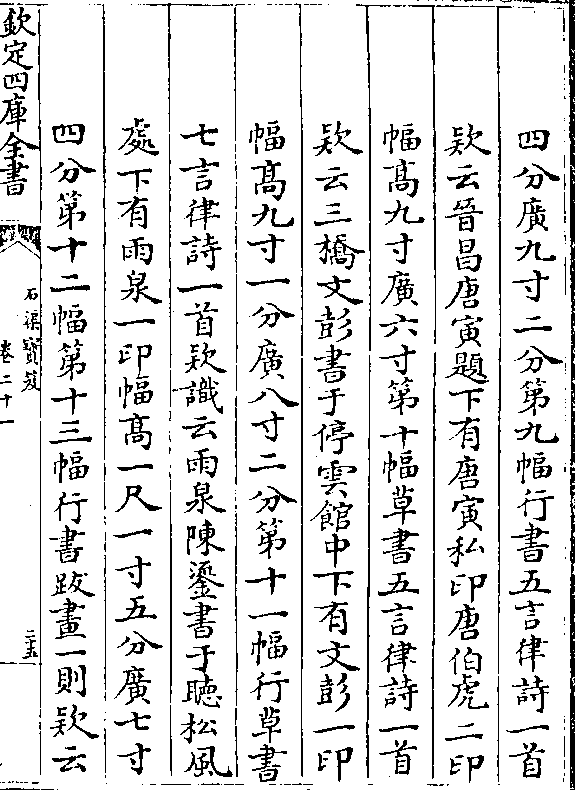 四分廣九寸二分第九幅行書五言律詩一首
欵云晉昌唐寅題下有唐寅私印唐伯虎二印
幅髙九寸廣六寸第十幅草書五言律詩一首
欵云三橋文彭書于停雲館中下有文彭一印
幅髙九寸一分廣八寸二分第十一幅行草書
七言律詩一首欵識云雨泉陳鎏書于聽松風
處下有雨泉一印幅髙一尺一寸五分廣七寸
四分第十二幅第十三幅行書跋畫一則欵云
欽定四庫全書
石渠寶笈
卷二十一
二五